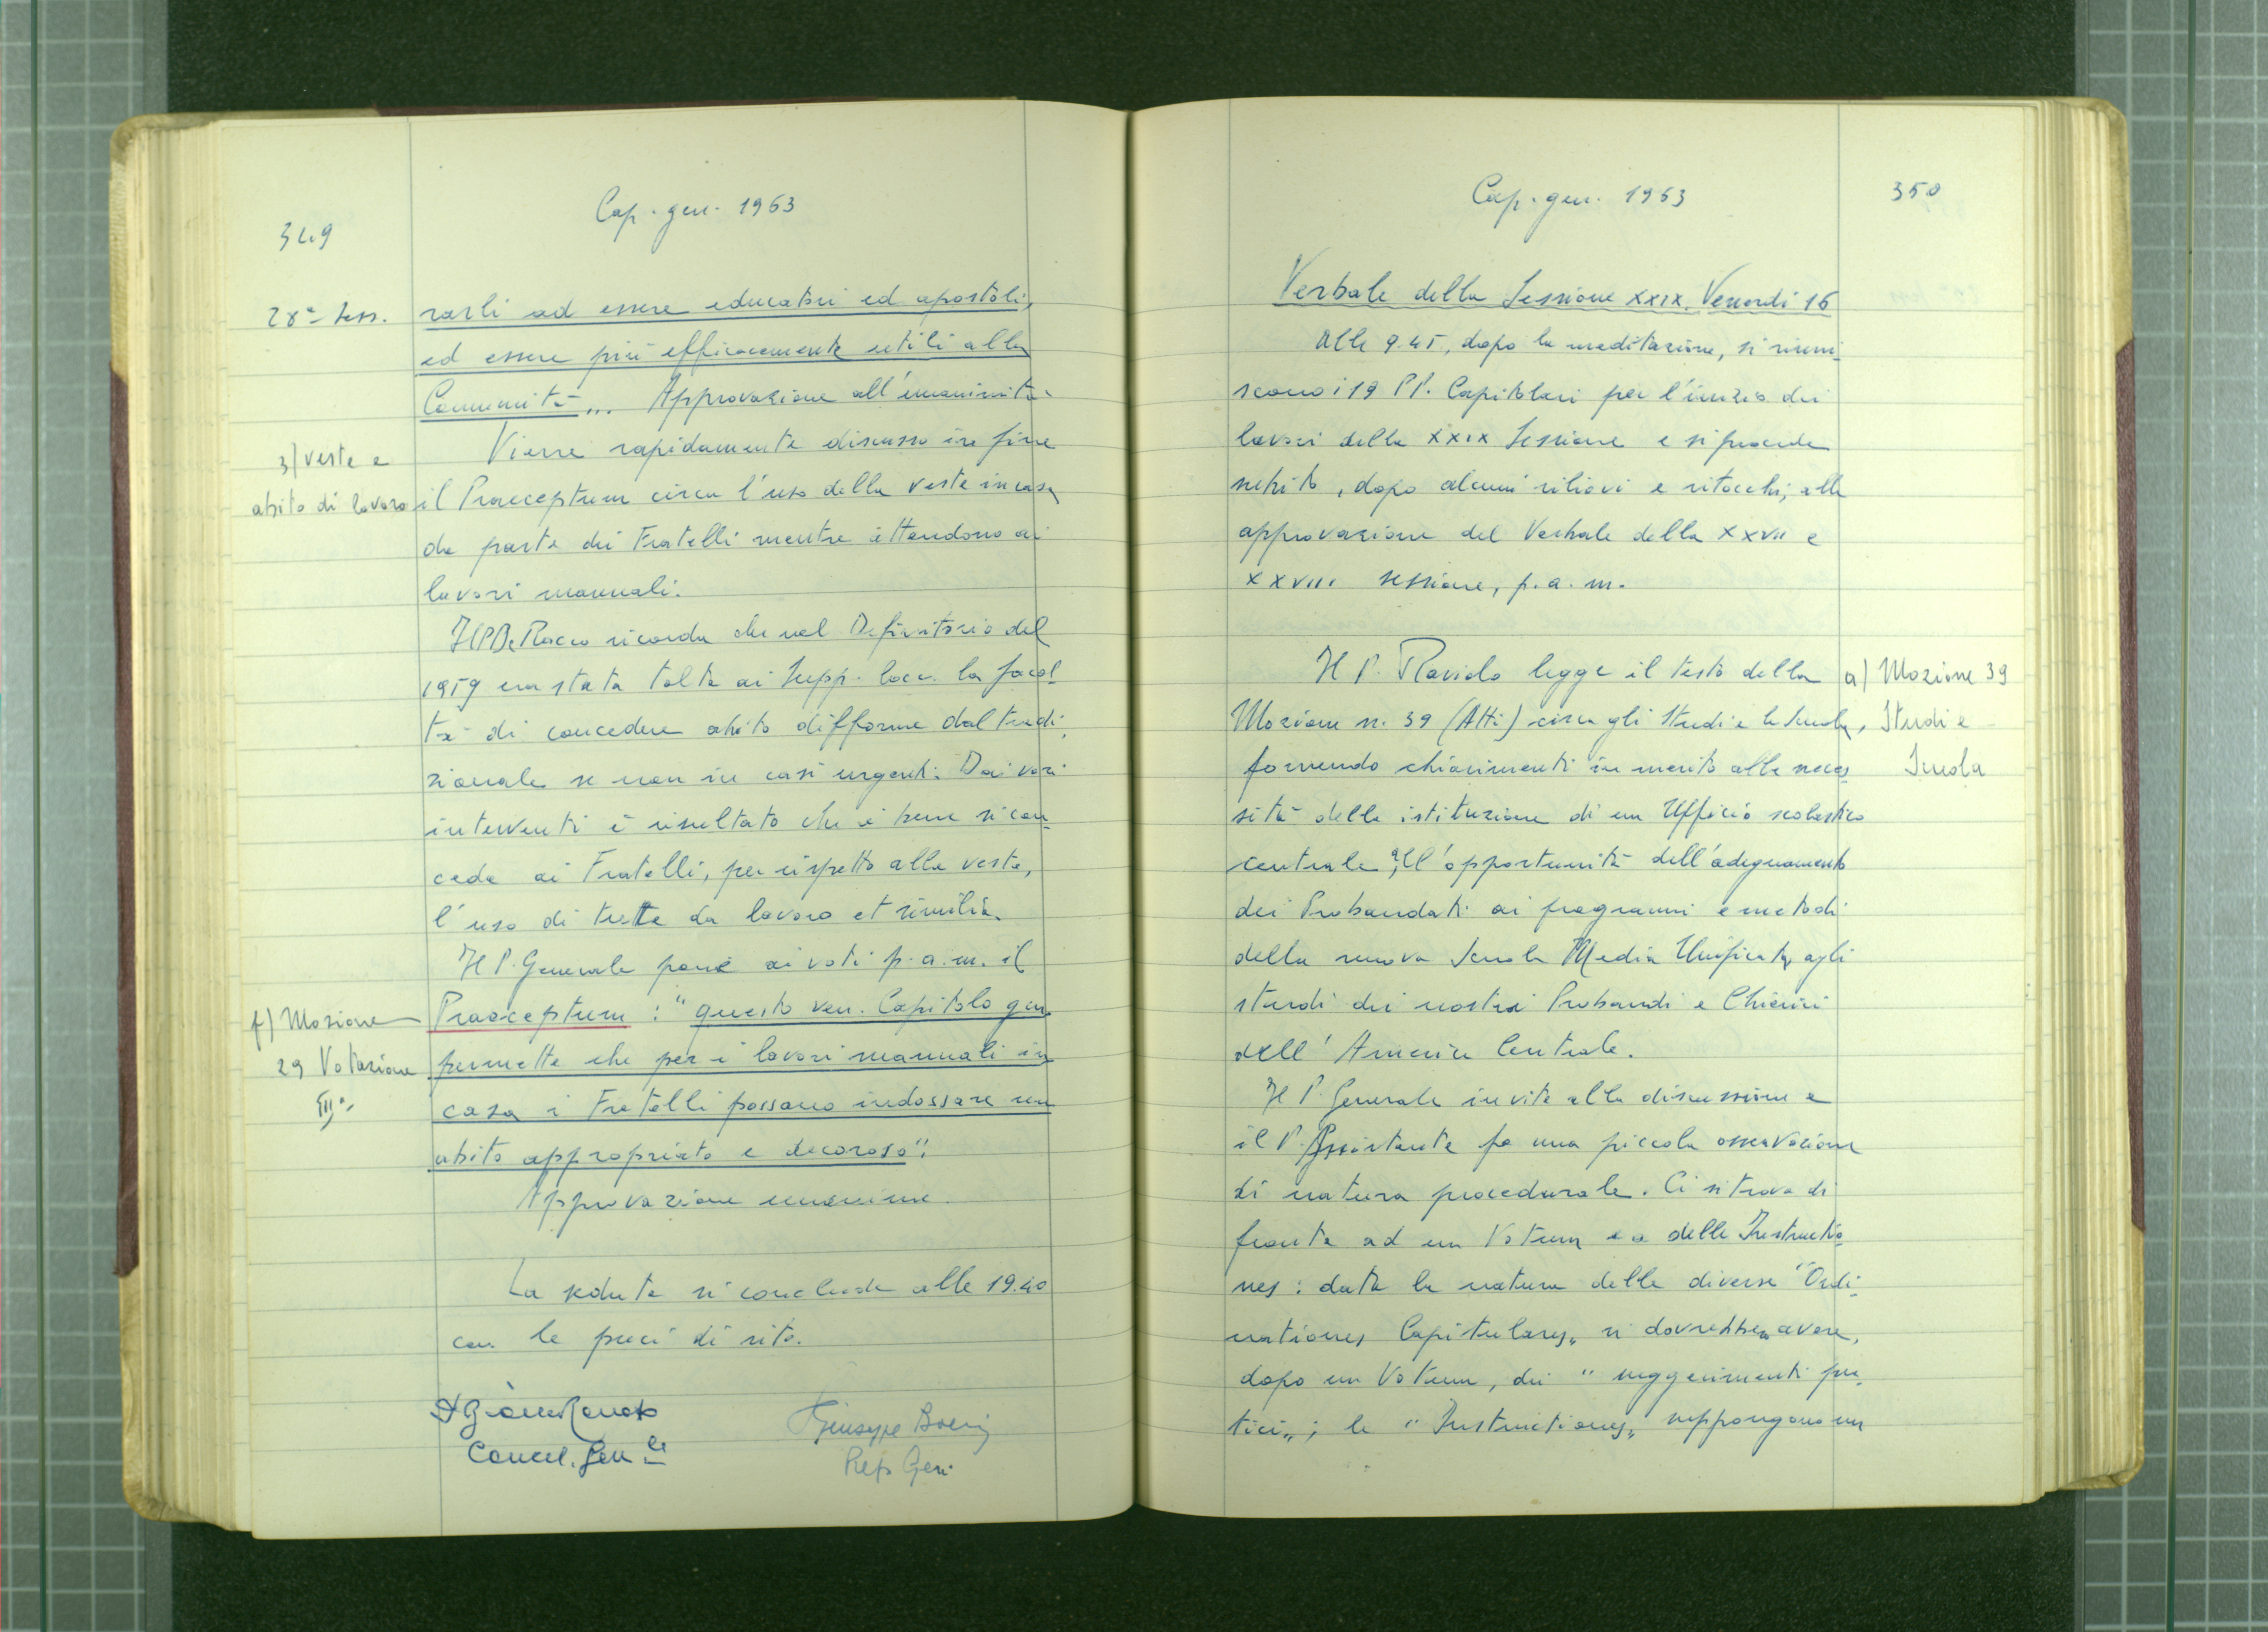 349
Cap. gen. 1963
28ª Sess.
rarli ad essere educatori ed apostoli,
ed essere più efficacemente utili alla
Comunità„.. Approvazione all'unanimità.
3) veste e
abito di lavoro
Viene rapidamente discusso in fine
il Praeceptum circa l'uso della veste in casa
da parte dei Fratelli mentre attendono ai
lavori manuali.
Il P. De Rocco ricorda che nel Definitorio del
1959 era stata tolta ai Supp. loca. la facol-
tà di concedere abito difforme dal tradi-
zionale se non in casi urgenti. Dai vari
interventi è risultato che è bene si con-
ceda ai Fratelli, per rispetto alla veste,
l'uso di tute da lavoro et similia.
Il P. Generale pone ai voti p.a.m. il
f) Mozione
29 Votazione
IIIª
Praeceptum : "questo ven. Capitolo gen.
permette che per i lavori manuali in
casa i Fratelli possano indossare un
abito appropriato e decoroso".
Approvazione unanime.
La seduta si conclude alle 19.40
con le preci di rito.
Cancel. Gen.le
Giuseppe Boeri
Prep. Gen.
Cap. gen. 1963
350
Verbale della Sessione XXIX. Venerdì 16
Alle 9.45, dopo la meditazione, si riuni-
scono i 19 PP. Capitolari per l'inizio dei
lavori della XXIX Sessione e si procede
subito, dopo alcuni rilievi e ritocchi, alla
approvazione del Verbale della XXVII e
XXVIII sessione, p.a.m.
a) Mozione 39
Studi e
Scuola
Il P. legge il testo della
Mozione n. 39 (Atti) circa gli Studi e la Scuola,
fornendo chiarimenti in merito alla neces-
sità della istituzione di un Ufficio scolastico
centrale, all'opportunità dell'adeguamento
dei Probandati ai programmi e metodi
della nuova Scuola Media Unificata, agli
studi dei nostri Probandi e Chierici
dell'America Centrale.
Il P. Generale invita alla discussione e
il P. Assistente fa una piccola osservazione
di natura procedurale. Ci si trova di
fronte ad un Votum e a delle Instructio-
nes : data la natura delle diverse "Ordi-
nationes Capitulares„ si dovrebbero avere,
dopo un Votum, dei "suggerimenti pra-
tici„ ; le "Instructiones„ suppongono un